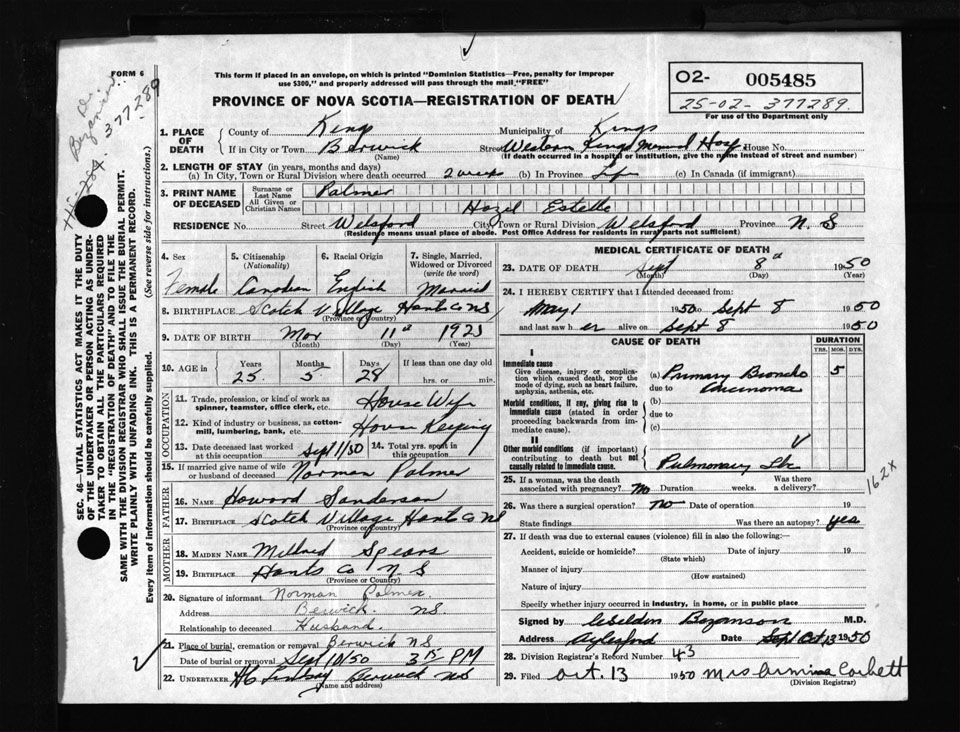 FORM 6
Dr. Bezanson
377289
This form if placed in an envelope, on which is printed "Dominion Statistics—Free, penalty for improper
use $300," and properly addressed will pass through the mail "FREE"
PROVINCE OF NOVA SCOTIA—REGISTRATION OF DEATH
O2- 005485
25-02- 377289
For use of the Department only
1. PLACE OF DEATH
County of Kings Municipality of Kings
If in City or Town Berwick (Name) Street Western Kings Memorial Hosp House No.
(If death occurred in a hospital or institution, give the name instead of street and number)
2. LENGTH OF STAY (in years, months and days)
(a) In City, Town or Rural Division where death occurred 2 weeks (b) In Province Life (c) In Canada (if immigrant)
3. PRINT NAME OF DECEASED
Surname or Last Name Palmer
All Given or Christian Names Hazel Estelle
RESIDENCE No. Street Welsford City, Town or Rural Division Welsford Province N.S
(Residence means usual place of abode. Post Office Address for residents in rural parts not sufficient)
4. Sex Female
5. Citizenship (Nationality) Canadian
6. Racial Origin English
7. Single, Married, Widowed or Divorced (write the word) Married
8. BIRTHPLACE Scotch Village Hants Co NS
(Province or Country)
9. DATE OF BIRTH Mar (Month) 11th (Day) 1925 (Year)
10. AGE in Years 25 Months 5 Days 28 If less than one day old hrs. or min.
OCCUPATION
11. Trade, profession, or kind of work as spinner, teamster, office clerk, etc. House Wife
12. Kind of industry or business, as cotton-mill, lumbering, bank, etc. House Keeping
13. Date deceased last worked at this occupation Sept 1/50 14. Total yrs. spent in this occupation
15. If married give name of wife or husband of deceased Norman Palmer
FATHER
16. NAME Howard Sanderson
17. BIRTHPLACE Scotch Village Hants Co NS
(Province or Country)
MOTHER
18. MAIDEN NAME Mildred Spears
19. BIRTHPLACE Hants Co N.S
(Province or Country)
20. Signature of informant Norman Palmer
Address Berwick. NS
Relationship to deceased Husband.
21. Place of burial, cremation or removal Berwick NS
Date of burial or removal Sept 10/50 3 15 PM
22. UNDERTAKER HC Lindsay Berwick NS
(Name and address)
MEDICAL CERTIFICATE OF DEATH
23. DATE OF DEATH Sept (Month) 8th (Day) 1950 (Year)
24. I HEREBY CERTIFY that I attended deceased from:
May 1 1950 to Sept 8 1950
and last saw h er alive on Sept 8 1950
CAUSE OF DEATH DURATION
YRS. MOS. DYS.
I
Immediate cause
Give disease, injury or complication which caused death, NOT the mode of dying, such as heart failure, asphyxia, asthenia, etc.
(a) Primary Broncho 5
due to Carcinoma
Morbid conditions, if any, giving rise to immediate cause (stated in order proceeding backwards from immediate cause).
(b)
due to
(c)
II
Other morbid conditions (if important) contributing to death but not causally related to immediate cause.
Pulmonary Tbc
162X
25. If a woman, was the death associated with pregnancy? No Duration weeks. Was there a delivery?
26. Was there a surgical operation? no Date of operation 19
State findings Was there an autopsy? yes
27. If death was due to external causes (violence) fill in also the following:—
Accident, suicide or homicide? Date of injury 19
(State which)
Manner of injury
(How sustained)
Nature of injury
Specify whether injury occurred in industry, in home, or in public place
Signed by Bezanson M.D.
Address Aylesford Date Sept Oct 13 1950
28. Division Registrar's Record Number 43
29. Filed Oct. 13 1950 Mrs Armina Corbett
(Division Registrar)
SEC. 46—VITAL STATISTICS ACT MAKES IT THE DUTY
OF THE UNDERTAKER OR PERSON ACTING AS UNDER-
TAKER TO OBTAIN ALL THE PARTICULARS REQUIRED
IN THE "REGISTRATION OF DEATH" AND TO FILE THE
SAME WITH THE DIVISION REGISTRAR WHO SHALL ISSUE THE BURIAL PERMIT.
WRITE PLAINLY WITH UNFADING INK. THIS IS A PERMANENT RECORD.
Every item of information should be carefully supplied. (See reverse side for instructions.)